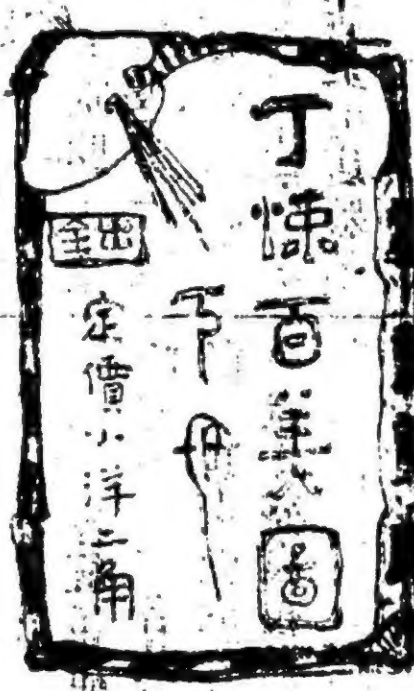 丁悚百美圖
下冊
出全
定價小洋三角